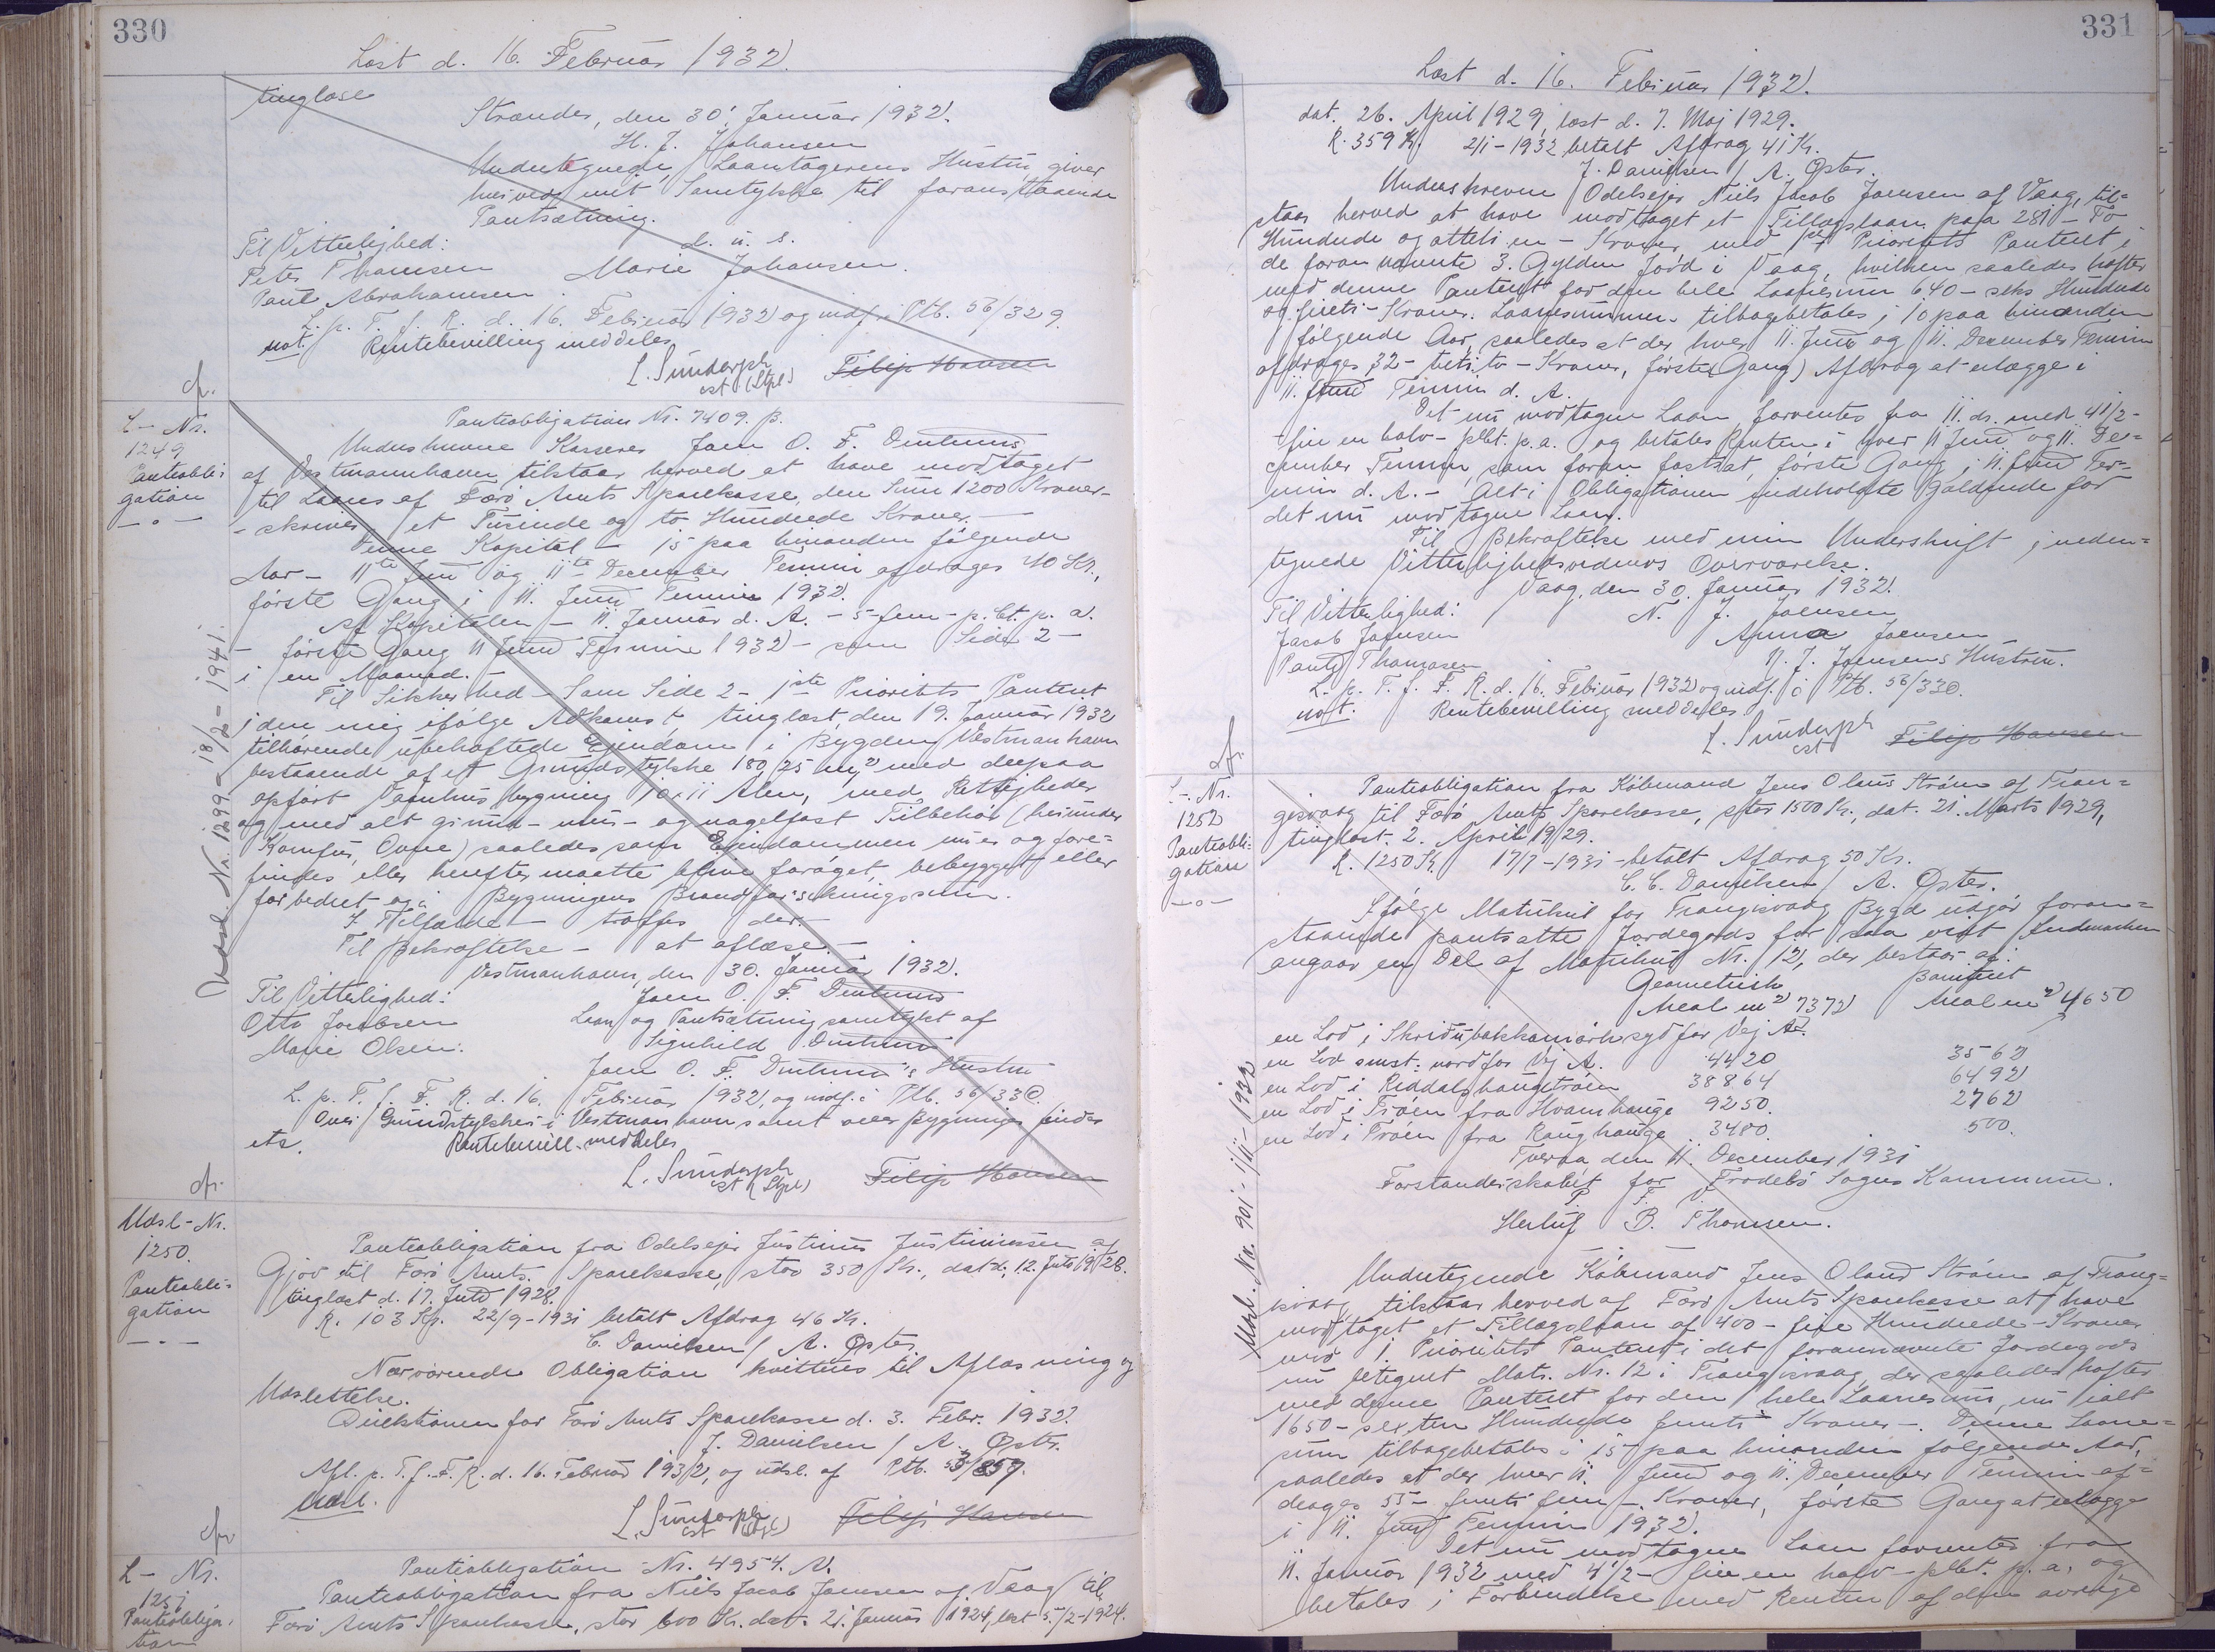 330
Læst d. 16. Februar 1932.
tinglæse
Strænder, den 30. Januar 1932.
H. J. Johansen
Undertegnede Laantagerens Hustru giver
herved mit Samtykke til foranstaaende
Pantsætning.
Til Vitterlighed: d. u. s.
Peter Thomsen Marie Johansen.
Paul Abrahamsen.
L. p. T. f. F. R. d. 16. Februar 1932 og indf. i Ptb. 56/329.
not. Rentebevilling meddeles
L. Sundorph
cst (Stpl) Filip Hansen
cfr.
L- Nr.
1249
Panteobli-
gation
Panteobligation Nr. 7409. B.
Underskrevne Kasserer Joen O. F.
af Vestmannhavn tilstaar herved at have modtaget
til Laans af Færø Amts Sparekasse, den Sum 1200 Kroner-
- skriver et Tusinde og to Hundrede Kroner.
Denne Kapital - 15 paa hinanden følgende
Aar - 11te Juni og 11te December Termin afdrages 40 Kr.,
første Gang i 11. Juni Termin 1932.
Af Kapitalen - 11. Januar d. A. - 5-fem- p. Ct. p. a.
- første Gang 11 Juni Termin 1932 - som Side 2 -
i en Maaned.
Til Sikkerhed - Som Side 2 - 1ste Prioritets Panteret
i den mig ifølge Adkomst tinglæst, den 19. Januar 1932
tilhørende ubehæftede Ejendom i Bygden Vestmanhavn
bestaaende af et Grundstykke 180,25 m2 med derpaa
opført Vaanhusbygning 10x11 Alen, med Rettigheder
og med alt grund- mur- og nagelfast Tilbehør (herunder
Komfur, Ovne) saaledes som Ejendommen nu er og fore-
findes eller herefter maatte blive forøget, bebygget eller
forbedret og i Bygningens Brandforsikringssum.
I Tilfælde - træffes der.
Til Bekræftelse - at aflæse. -
Vestmanhavn, den 30. Januar 1932.
Til Vitterlighed: Joen O. F.
Otto Jacobsen Laan og Pantsætning samtykt af
Marie Olsen. Signhild
Joen O. F. Hustru
L. p. T. f. F. R. d. 16. Februar 1932, og indf. i Ptb. 56/330.
Over Grundstykker i Vestmanhavn samt over Bygninger findes
etc. Rentebevill. meddeles
L. Sundorph
cst (Stpl) Filip Hansen
Udsl. Nr. 1299 - 18/2 - 1941.
cfr.
Udsl- Nr.
1250.
Panteobli-
gation
Panteobligation fra Odelsejer Justinus Justinussen af
Gjov til Færø Amts Sparekasse, stor 350 Kr., dat. d. 12. Juli 1928.
tinglæst d. 17. Juli 1928.
R. 103 Kr. 22/9-1931 betalt Afdrag 46 Kr.
C. Danielsen / A. Øster.
Nærværende Obligation kvitteres til Aflæsning og
Udslettelse.
Direktionen for Færø Amts Sparekasse d. 3. Febr. 1932.
J. Danielsen / A. Øster.
Afl. p. T. f. F. R. d. 16. Februar 1932, og udsl. af Ptb. 53/859.
Udsl.
L. Sundorph
cst (Stpl) Filip Hansen
cfr
L- Nr.
1251
Panteobliga-
tion
Panteobligation Nr. 4954. A.
Panteobligation fra Niels Jacob Joensen af Vaag til
Færø Amts Sparekasse, stor 600 Kr. dat. 21. Januar 1924, læst 5/2-1924.
331
Læst d. 16. Februar 1932.
dat. 26. April 1929, læst d. 7. Maj 1929.
R. 359 Kr. 2/1-1932 betalt Afdrag 41 Kr.
J. Danielsen / A. Øster.
Underskreven Odelsejer Niels Jacob Joensen af Vaag, til-
staar herved at have modtaget et Tillægslaan paa 281 - To
Hundrede og otteti en - Kroner, med 1ste Prioritets Panteret i
de foran nævnte 3. Gylden Jord i Vaag, hvilken saaledes hæfter
med denne Panteret for den hele Laanesum 640 - seks Hundrede
og fireti - Kroner. Laanesummen tilbagebetales i 10 paa hinanden
følgende Aar, saaledes at der hver 11. Juni og 11. December Termin
afdrages 32 - treti to - Kroner, første Gang Afdrag at erlægge i
11. Juni Termin d. A.
Det nu modtagne Laan forrentes fra 11. ds. med 4 1/2 -
fire en halv - pCt. p. a. og betales Renten i hver 11 Juni og 11. De-
cember Termin, som foran fastsat, første Gang i 11. Juni Ter-
min d. A. - Alt i Obligationen indeholdte gældende for
det nu modtagne Laan.
Til Bekræftelse med min Underskrift i neden-
tegnede Vitterlighedsvidners Overværelse.
Vaag, den 30. Januar 1932.
Til Vitterlighed: N. J. Joensen
Jacob Joensen Anna Joensen
Paul Thomsen N. J. Joensens Hustru.
L. p. T. f. F. R. d. 16. Februar 1932 og indf. i Ptb. 56/330.
not. Rentebevilling meddeles
L. Sundorph
cst Filip Hansen
cfr.
L- Nr.
1252
Panteobli-
gation
Panteobligation fra Købmand Jens Olaus Strøm af Tran-
gisvaag til Færø Amts Sparekasse, stor 1500 Kr., dat. 21. Marts 1929,
tinglæst. 2. April 1929.
R. 1250 Kr. 17/7-1931 - betalt Afdrag 50 Kr.
C. C. Danielsen / A. Øster.
Ifølge Matrikul for Trangisvaag Bygd udgør foran-
staaende pantsatte Jordegods for saa vidt Indmarken
angaar en Del af Matrikul Nr. 12, der bestaar af:
Geometrisk Boniteret
Areal m2 7372 Areal m2 4650
en Lod i Skridubakkamørk syd for Vej A.
en Lod smst. nord for Vej A. 4420 3562
en Lod i Reddalshaugetrøen 38864 6492
en Lod i Trøen fra Hvamhauge 9250. 2762
en Lod i Trøen fra Raughauge 3480. 500.
Tveraa den 11. December 1931
Forstanderskabet for Frodebø Sogns Kommune.
P. F. V.
Herluf B. Thomsen.
Undertegnede Købmand Jens Olaus Strøm af Trang-
isvaag tilstaar herved af Færø Amts Sparekasse at have
modtaget et Tillægslaan af 400 - fire Hundrede - Kroner
mod 1 Prioritets Panteret i det forannævnte Jordegods
nu betegnet Matr. Nr. 12 i Trangisvaag, der saaledes hæfter
med denne Panteret for den hele Laanesum, nu ialt
1650 - sexten Hundrede femti Kroner -. Denne Laane-
sum tilbagebetales i 15 paa hinanden følgende Aar,
saaledes at der hver 11. Juni og 11. December Termin af-
drages 55 - femti fem - Kroner, første Gang at erlægge
i 11. Juni Termin 1932.
Det nu modtagne Laan forrentes fra
11. Januar 1932 med 4 1/2 - fire en halv - pCt. p. a. og
betales i Forbindelse med Renten af den øvrige
Udsl. Nr. 901 - 1/11 - 1932